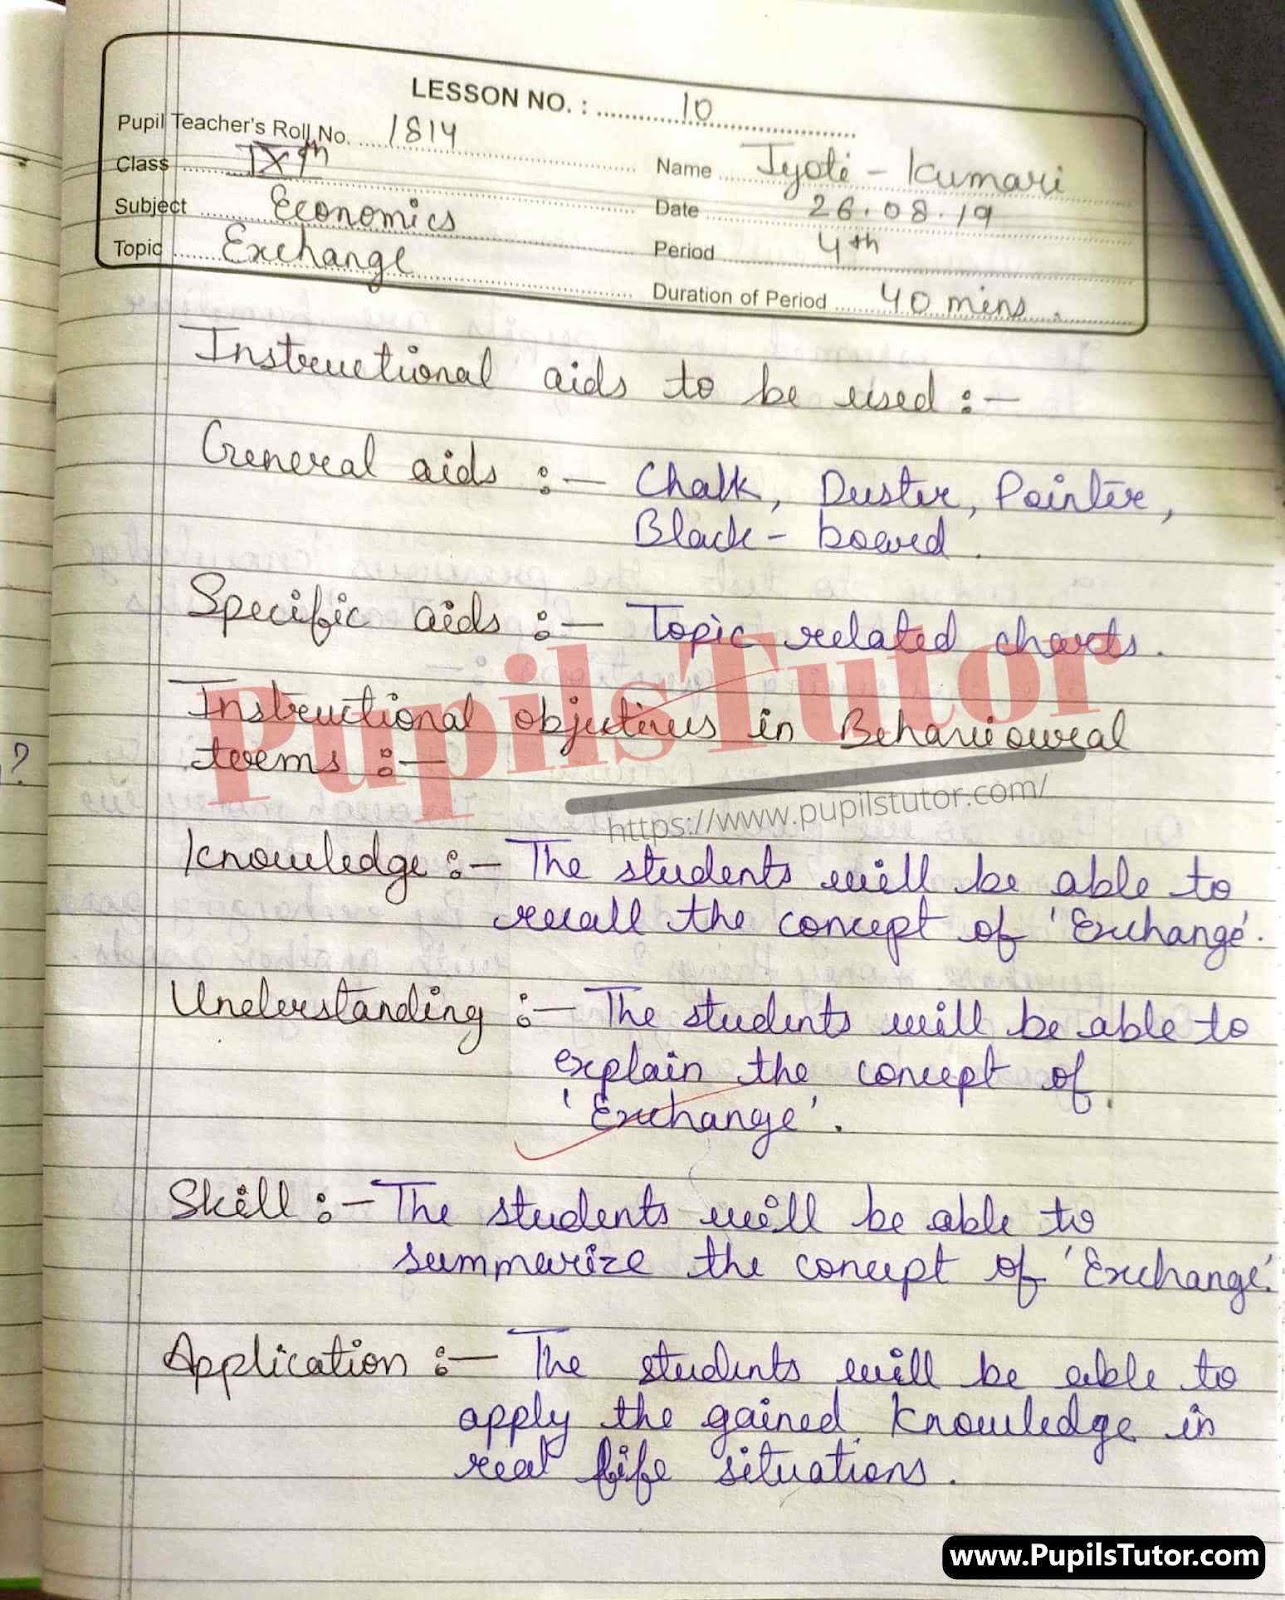 LESSON NO. : 10
Pupil Teacher's Roll No. 1814
Class IXth
Name Jyoti - Kumari
Subject Economics
Date 26.08.19
Topic Exchange
Period 4th
Duration of Period 40 mins.
Instructional aids to be used :-
General aids :- Chalk, Duster, Pointer,
Black-board.
Specific aids :- Topic related charts.
PupilsTutor
Instructional objectives in Behavioural
terms :-
?
https://www.pupilstutor.com/
Knowledge :- The students will be able to
recall the concept of 'Exchange'.
Understanding :- The students will be able to
explain the concept of
'Exchange'.
Skill :- The students will be able to
summarize the concept of 'Exchange'.
Application :- The students will be able to
apply the gained knowledge in
real life situations.
www.PupilsTutor.com